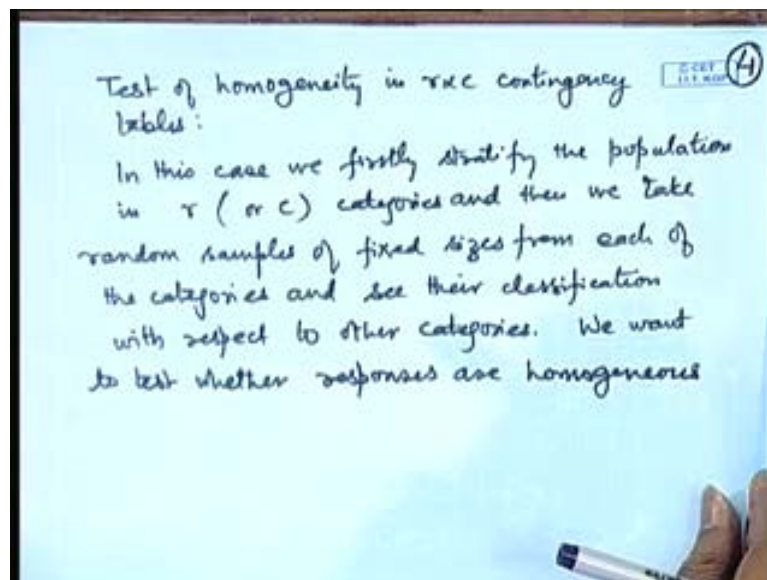 Test of homogeneity in rxc contingency
tables:
In this case we firstly stratify the population
in r (or c) categories and then we take
random samples of fixed sizes from each of
the categories and see their classification
with respect to other categories. We want
to test whether responses are homogeneous
© CET
I.I.T. KGP
4